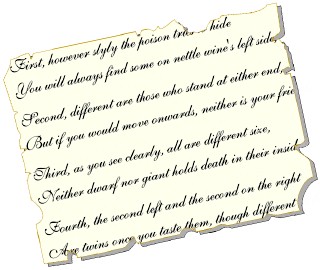 First, however slyly the poison tries to hide
You will always find some on nettle wine's left side,
Second, different are those who stand at either end,
But if you would move onwards, neither is your fri
Third, as you see clearly, all are different size,
Neither dwarf nor giant holds death in their insid
Fourth, the second left and the second on the right
Are twins once you taste them, though different